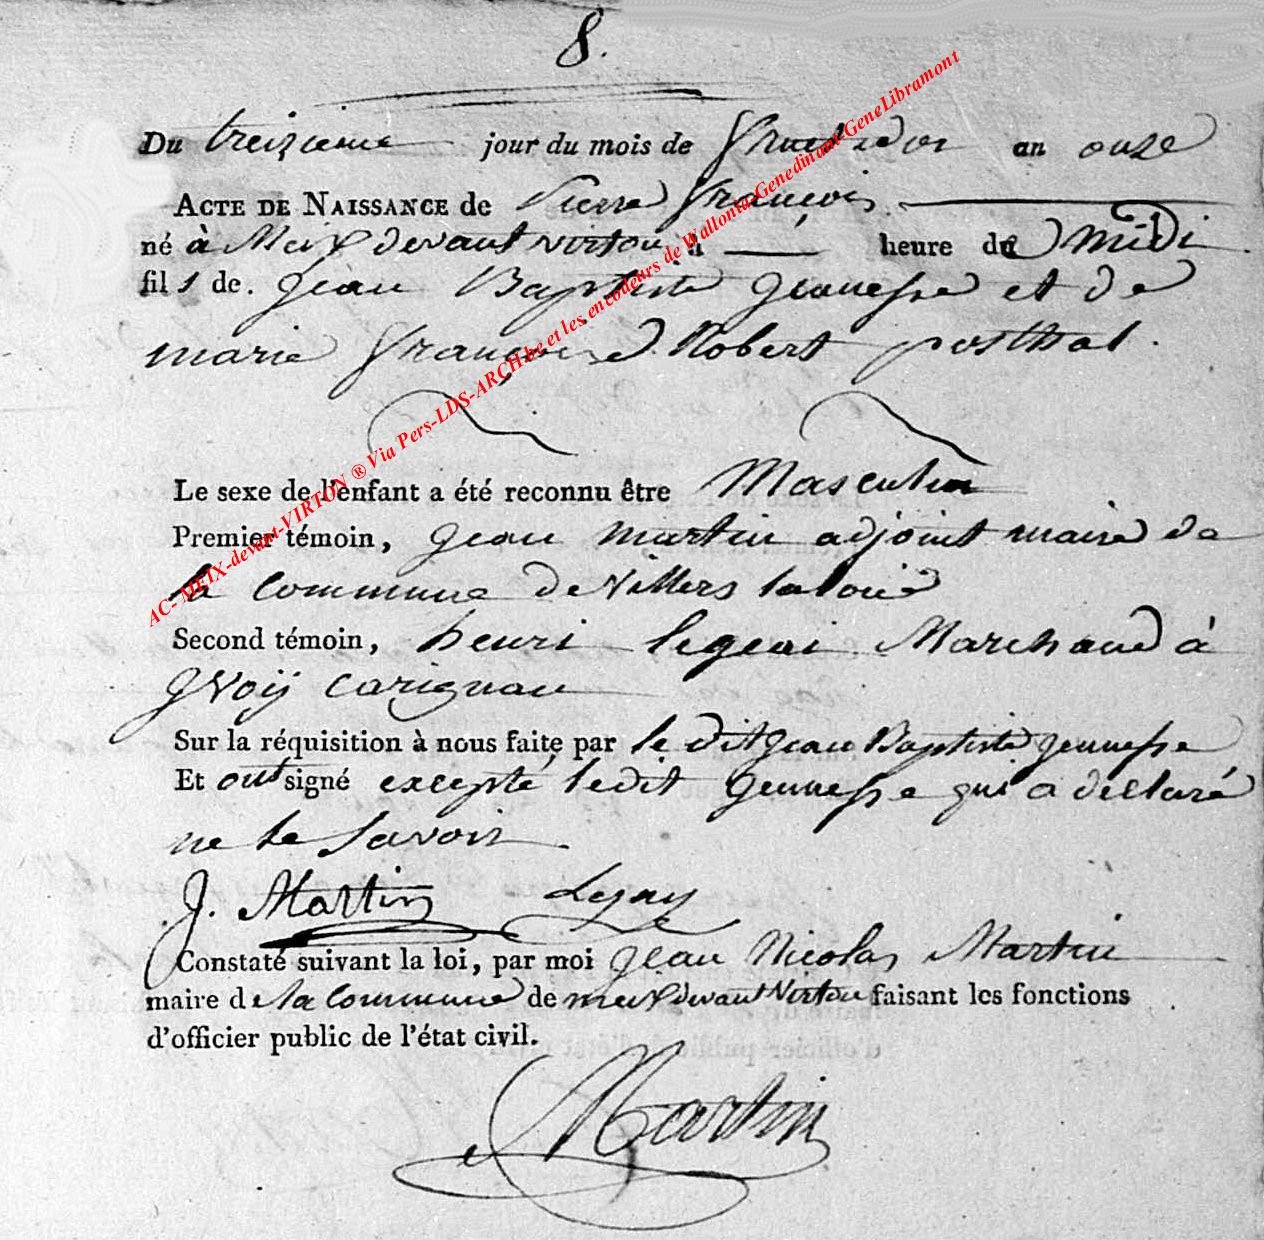 8.
Du treizieme jour du mois de fructidor an onze
ACTE DE NAISSANCE de Pierre François
né à Meix devant virton à heure de Midi
fils de. jean Baptiste jeunesse et de
marie françoise Robert posthal.
Le sexe de l'enfant a été reconnu être Masculin
Premier témoin, jean martin adjoint maire de
la commune de Villers laloue
Second témoin, henri legeai Marchand à
yvoij carignan
Sur la réquisition à nous faite par le dit jean Baptiste jeunesse
Et ont signé excepté ledit jeunesse qui a declaré
ne le savoir
J. Martin Legay
Constaté suivant la loi, par moi jean Nicolas Martin
maire de la commune de meix devant Virton faisant les fonctions
d'officier public de l'état civil.
Martin
AC- MEIX-devant-VIRTON ® Via Pers-LDS-ARCH be et les encodeurs de Wallonia-Genedinant-GeneLibramont